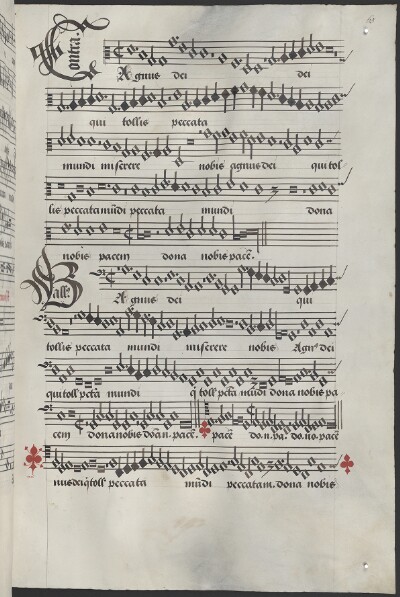 Contra.
Agnus dei dei
qui tollis peccata
mundi miserere nobis agnus dei qui tol
lis peccata mūdi peccata mundi dona
nobis pacem dona nobis pacē.
Agnus dei qui
tollis peccata mundi miserere nobis Agn⁹ dei
qui toll pctā mundi q toll pctā mūdi dona nobis pa
cem dona nobis pacē. pacē do. n. pa. do. no. pacē
nus dei q toll peccata mūdi peccata m. dona nobis